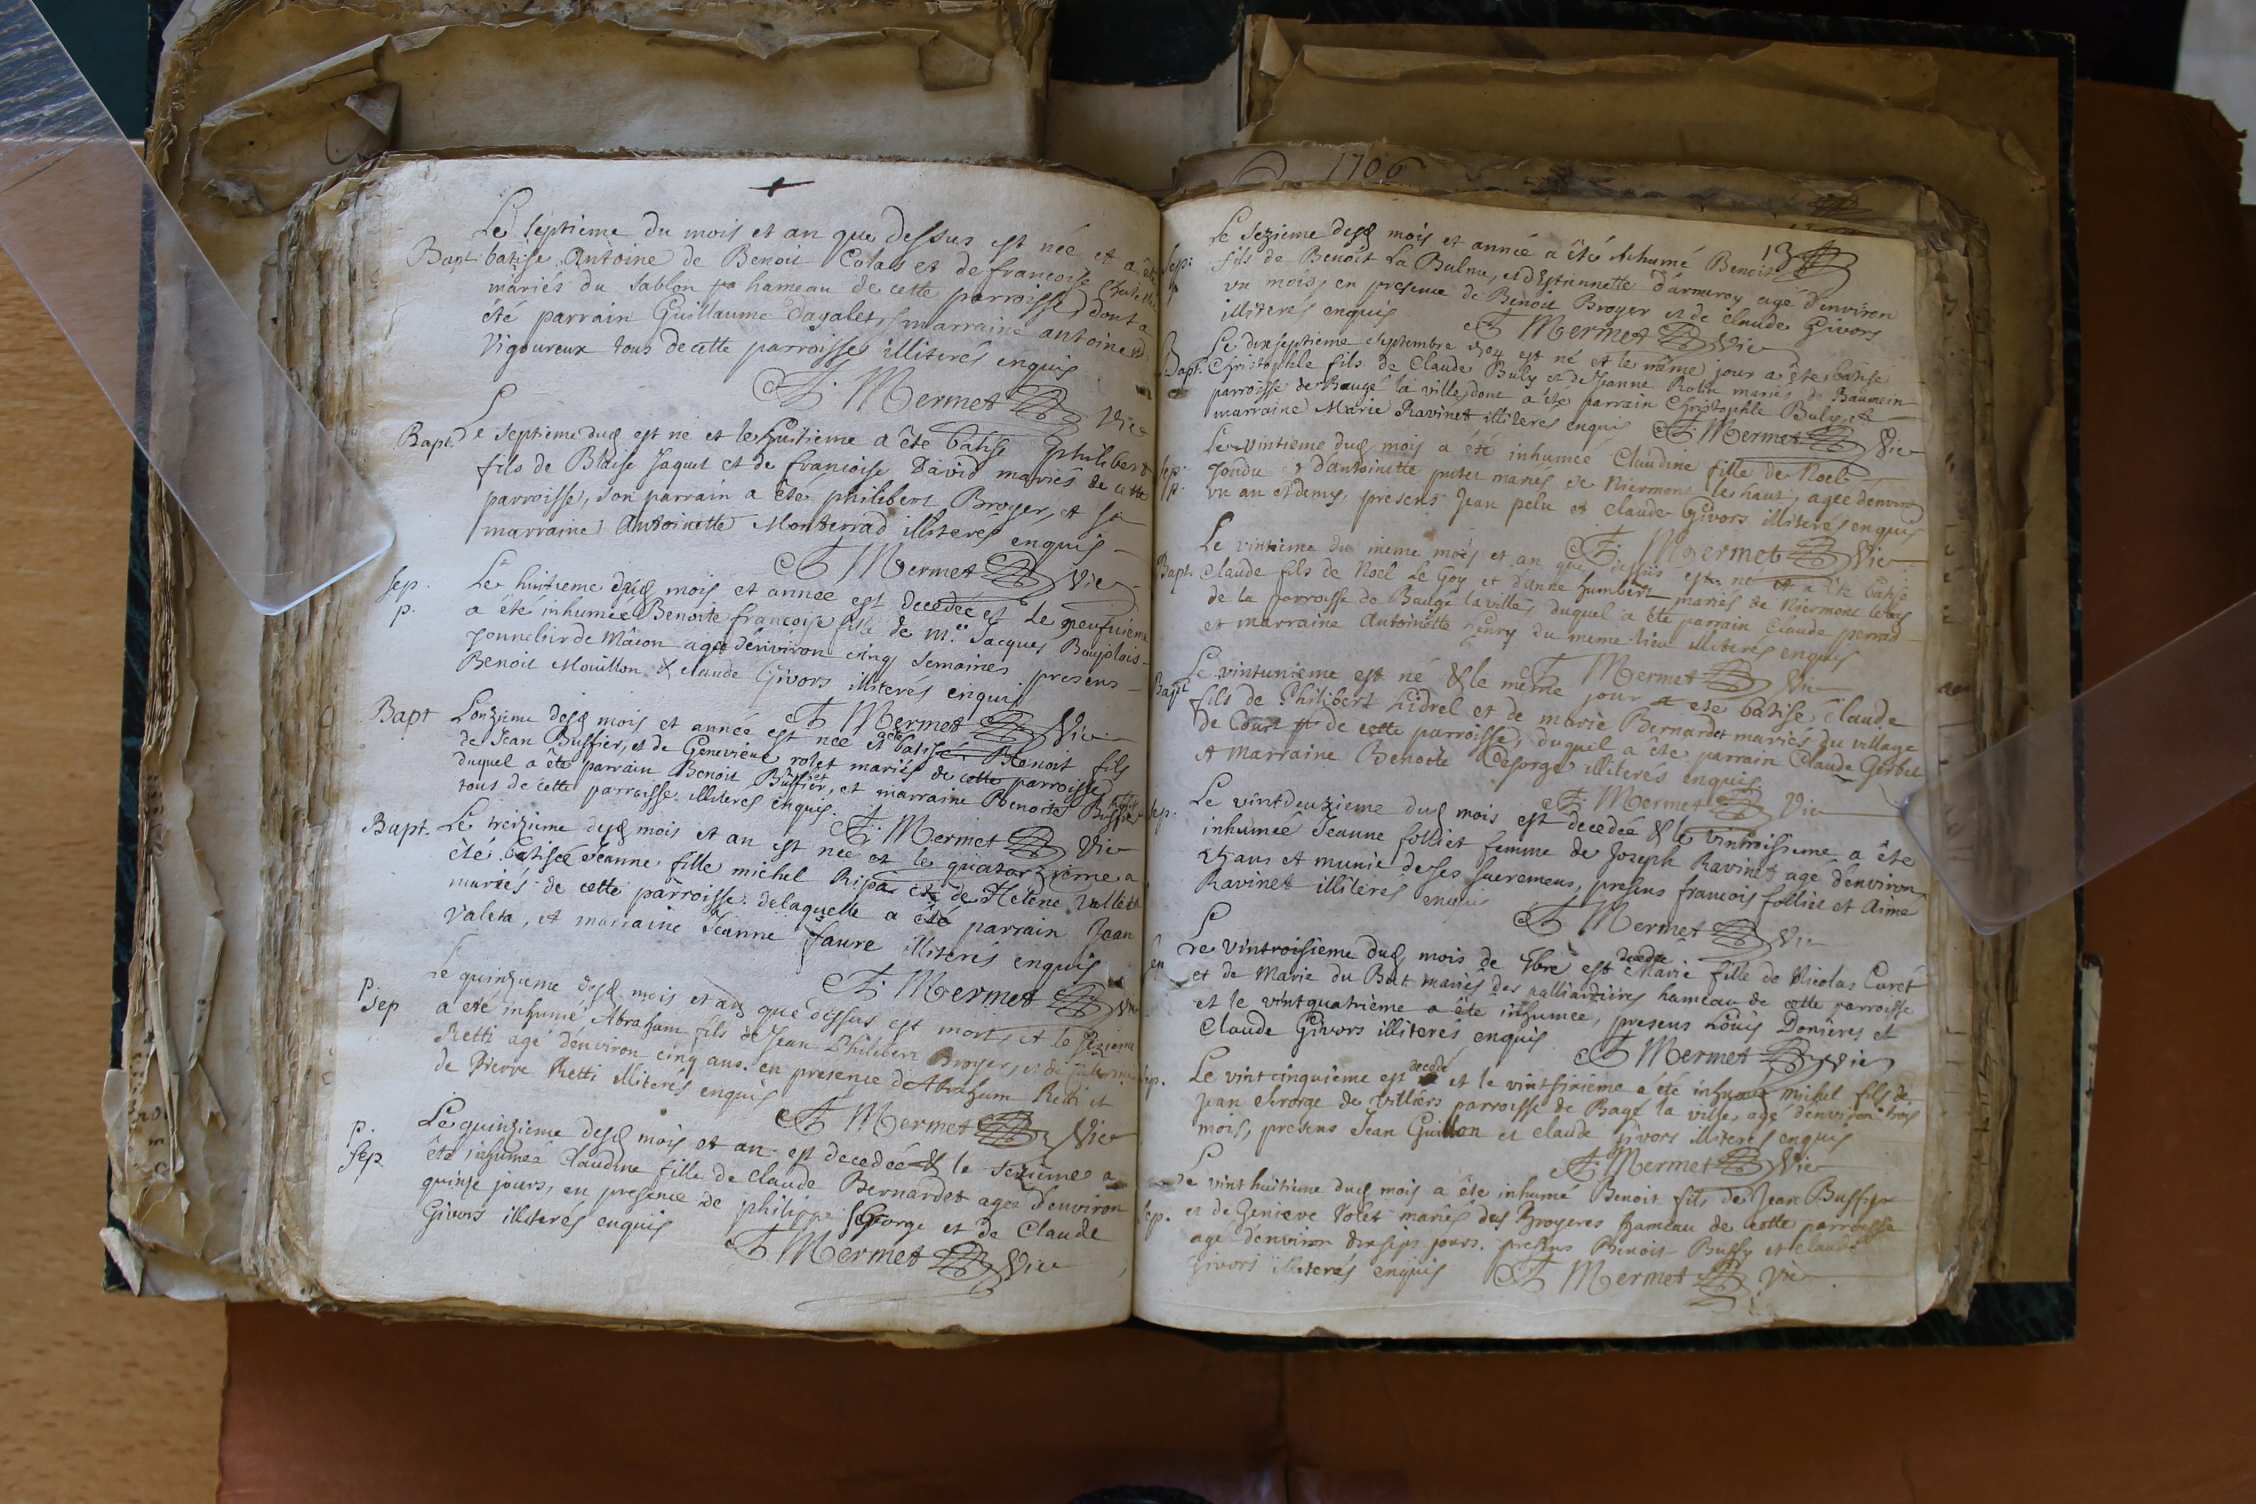 Le septieme du mois et an que dessus est née et a été
Bapt batisé Antoine de Benoit Colas et de francoise
mariés du sablon hameau de cette parroisse dont a
été parrain Guillaume Dagalet, marraine antoinette
Vigoureux tous de cette parroisse illiterés enquis
F. Mermet Vic
Bapt. Le septieme dud est né et le huitieme a ête batisé philibert
fils de Blaise Jaquet et de francoise David mariés de cette
parroisse, son parrain a ête philibert Broyer, et sa
marraine Antoinette Monterrad illiterés enquis
F. Mermet Vic
Sep. p. Le huitieme dud mois et année est decedée et le neufvieme
a été inhumée Benoite francoise fille de m.re Jacques Baujolois
de Mâcon agée d'environ cinq semaines presens
Benoit Mouillon & claude Givors illiterés enquis
F. Mermet Vic
Bapt L'onzieme desd mois et année est née et été batisé Benoit fils
de Jean Buffier, et de Genevieve rolet mariés de cette parroisse
duquel a êté parrain Benoit Buffier, et marraine Benoite Buffier
tous de cette parroisse illiteres enquis.
F. Mermet Vic
Bapt. Le treizieme desd mois et an est née et le quatorzieme a
été batisée Jeanne fille michel Ripa et de Helene Vallet
mariés de cette parroisse. delaquelle a été parrain Jean
Valeta, et marraine Jeanne faure illiterés enquis
F. Mermet Vic
P sep Le quinzieme desd mois et an que dessus est mort, et le sezieme
a eté inhumé Abraham fils de Jean Philibert Broyer, et de
Retti agé d'environ cinq ans. en presence d'Abraham Retti et
de Pierre Retti illiterés enquis
F. Mermet Vic
p. sep Le quinzieme desd mois et an est decedée & le sezieme a
été inhumée Claudine fille de claude Bernardet agée d'environ
quinze jours, en presence de philippe George et de Claude
Givors illiterés enquis
F. Mermet Vic
1706
13
sep: p Le sezieme desd mois et année a êté inhumé Benoit
fils de Benoit La Balme, et d'Estiennette d'armeroy agé d'environ
un mois, en presence de Benoit Broyer et de claude Givors
illiterés enquis F. Mermet Vic
Bapt. Le dixseptieme septembre est né et le même jour a été batisé
Christophle fils de Claude Buly et de Jeanne Rolin mariés de
parroisse de Baugé la ville, dont a été parrain Christophle Buly, et
marraine Marie Ravinet illiterés enquis F. Mermet Vic
sep. p. Le vintieme dud mois a été inhumée Claudine fille de Noel
et d'antoinette putet mariés de Niermont le haut, agée denviron
un an et demy, presens Jean pelu et claude Givors illiterés enquis
F. Mermet Vic
Bapt. Le vintieme du meme mois et an que dessus est né et a été batisé
Claude fils de Noel Le Goy et d'anne humbert mariés de Niermont le bas
de la parroisse de Baugé la ville, duquel a été parrain claude perrad
et marraine Antoinette henry du meme lieu illiterés enquis
F. Mermet Vic
Bapt Le vintunieme est né & le même jour a esté batisé claude
fils de Philibert Lidrel et de marie Bernardet mariés du village
de Court de cette parroisse, duquel a été parrain Claude Gerbet
et marraine Benoite George illiterés enquis
F. Mermet Vic
sep. Le vintdeuzieme dud mois est decedée & le vintroissieme a été
inhumée Jeanne folliet femme de Joseph Ravinet agé d'environ
ans et munie de ses sacremens, presens francois folliet et Aimé
Ravinet illiterés enquis
F. Mermet Vic
sep Le vintroisieme dud mois de 7bre est decedée Marie fille de Nicolas Curét
et de Marie du But mariés des palliardieres hameau de cette parroisse
et le vintquatrième a été inhumée, presens Louis Donieres et
Claude Givors illiterés enquis F. Mermet Vic
sep. Le vintcinquieme est decedé et le vintsixieme a été inhumé michel fils de
Jean George de Villiers parroisse de Bagé la ville, agé d'environ trois
mois, presens Jean Guillon et claude Givors illiterés enquis
F. Mermet Vic
sep. Le vint huitieme dud mois a été inhumé Benoit fils de Jean Buffyer
et de Genieve Rolet mariés des Broyeres hameau de cette parroisse
agé d'environ dixsept jours. presens Benoit Buffy et claude
Givors illiterés enquis F. Mermet Vic